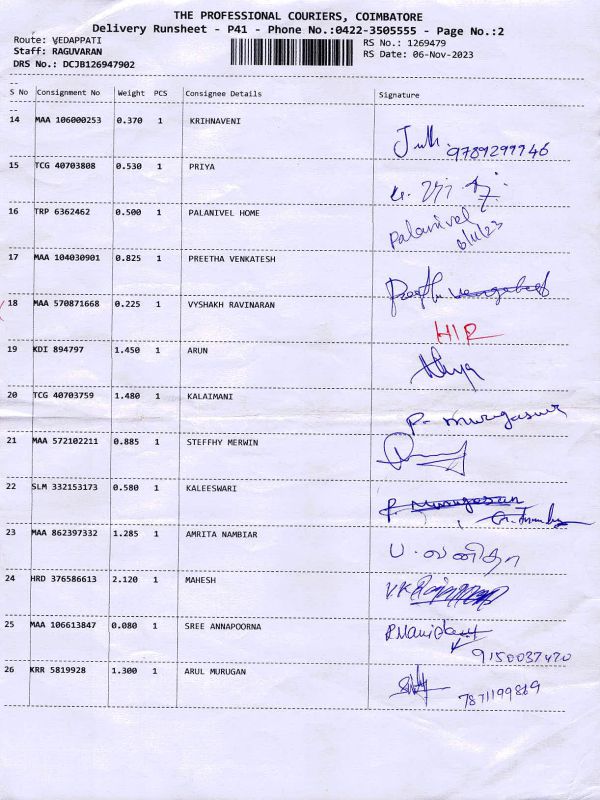 THE PROFESSIONAL COURIERS, COIMBATORE
Delivery Runsheet - P41 - Phone No.:0422-3505555 - Page No.:2
Route: VEDAPPATI
RS No.: 1269479
Staff: RAGUVARAN
RS Date: 06-Nov-2023
DRS No.: DCJB126947902
S No Consignment No Weight PCS Consignee Details Signature
14 MAA 106000253 0.370 1 KRIHNAVENI
9789299946
15 TCG 40703808 0.530 1 PRIYA
16 TRP 6362462 0.500 1 PALANIVEL HOME Palanivel
6/11/23
17 MAA 104030901 0.825 1 PREETHA VENKATESH
18 MAA 570871668 0.225 1 VYSHAKH RAVINARAN
HIR
19 KDI 894797 1.450 1 ARUN
20 TCG 40703759 1.480 1 KALAIMANI
21 MAA 572102211 0.885 1 STEFFHY MERWIN
22 SLM 332153173 0.580 1 KALEESWARI
P. Murugesan
23 MAA 862397332 1.285 1 AMRITA NAMBIAR
ப. வனிதா
24 HRD 376586613 2.120 1 MAHESH
25 MAA 106613847 0.080 1 SREE ANNAPOORNA
9150037420
26 KRR 5819928 1.300 1 ARUL MURUGAN
7871199869